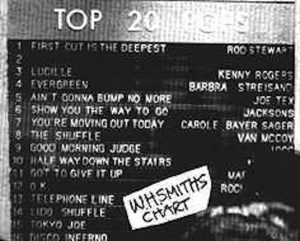 TOP 20 POPS
1 FIRST CUT IS THE DEEPEST ROD STEWART
2
3 LUCILLE KENNY ROGERS
4 EVERGREEN BARBRA STREISAND
5 AIN'T GONNA BUMP NO MORE JOE TEX
6 SHOW YOU THE WAY TO GO JACKSONS
7 YOU'RE MOVING OUT TODAY CAROLE BAYER SAGER
8 THE SHUFFLE VAN MCCOY
9 GOOD MORNING JUDGE
10 HALF WAY DOWN THE STAIRS
11 GOT TO GIVE IT UP MA
12 O.K. ROC
13 TELEPHONE LINE
14 LIDO SHUFFLE
15 TOKYO JOE
16 DISCO INFERNO
WHSMITHS
CHART